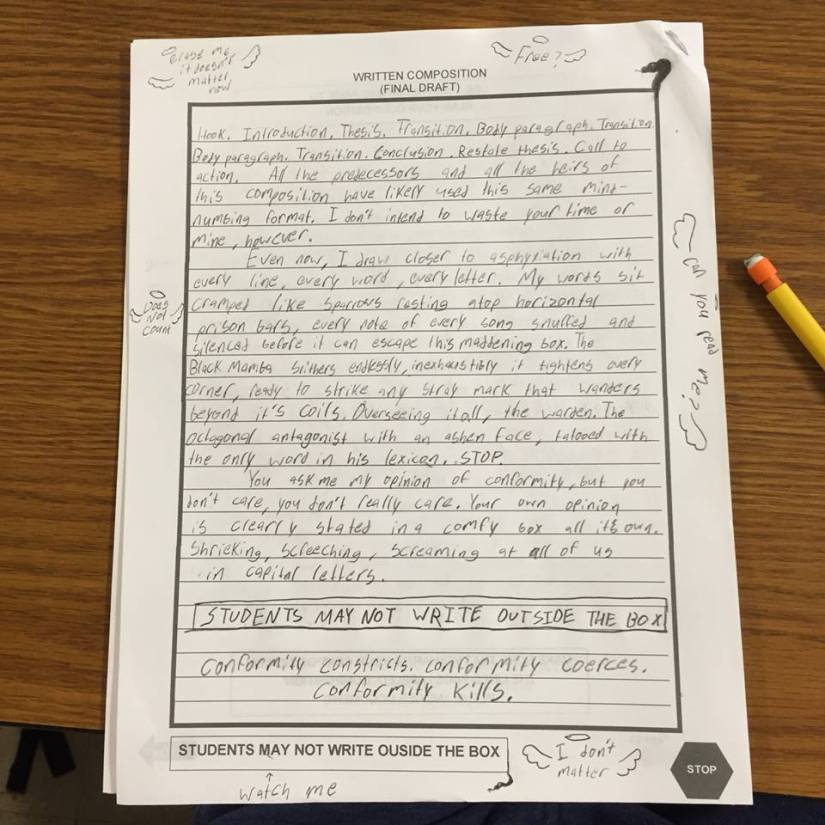 erase me
it doesn't
matter
now
Free?
WRITTEN COMPOSITION
(FINAL DRAFT)
Hook. Introduction. Thesis. Transition. Body paragraph. Transition.
Body paragraph. Transition. Conclusion. Restate thesis. Call to
action. All the predecessors and all the heirs of
this composition have likely used this same mind-
numbing format. I don't intend to waste your time or
mine, however.
Even now, I draw closer to asphyxiation with
every line, every word, every letter. My words sit
cramped like sparrows resting atop horizontal
prison bars, every note of every song snuffed and
silenced before it can escape this maddening box. The
Black Mamba slithers endlessly, inexhaustibly it tightens every
corner, ready to strike any stray mark that wanders
beyond it's coils. Overseeing it all, the warden. The
octagonal antagonist with an ashen face, tatooed with
the only word in his lexicon. STOP.
You ask me my opinion of conformity, but you
don't care, you don't really care. Your own opinion
is clearly stated in a comfy box all its own.
Shrieking, screeching, screaming at all of us
in capital letters.
STUDENTS MAY NOT WRITE OUTSIDE THE BOX
Conformity constricts. Conformity coerces.
Conformity kills.
Does
Not
Count
Can you read me?
STUDENTS MAY NOT WRITE OUSIDE THE BOX
watch me
I don't
matter
STOP